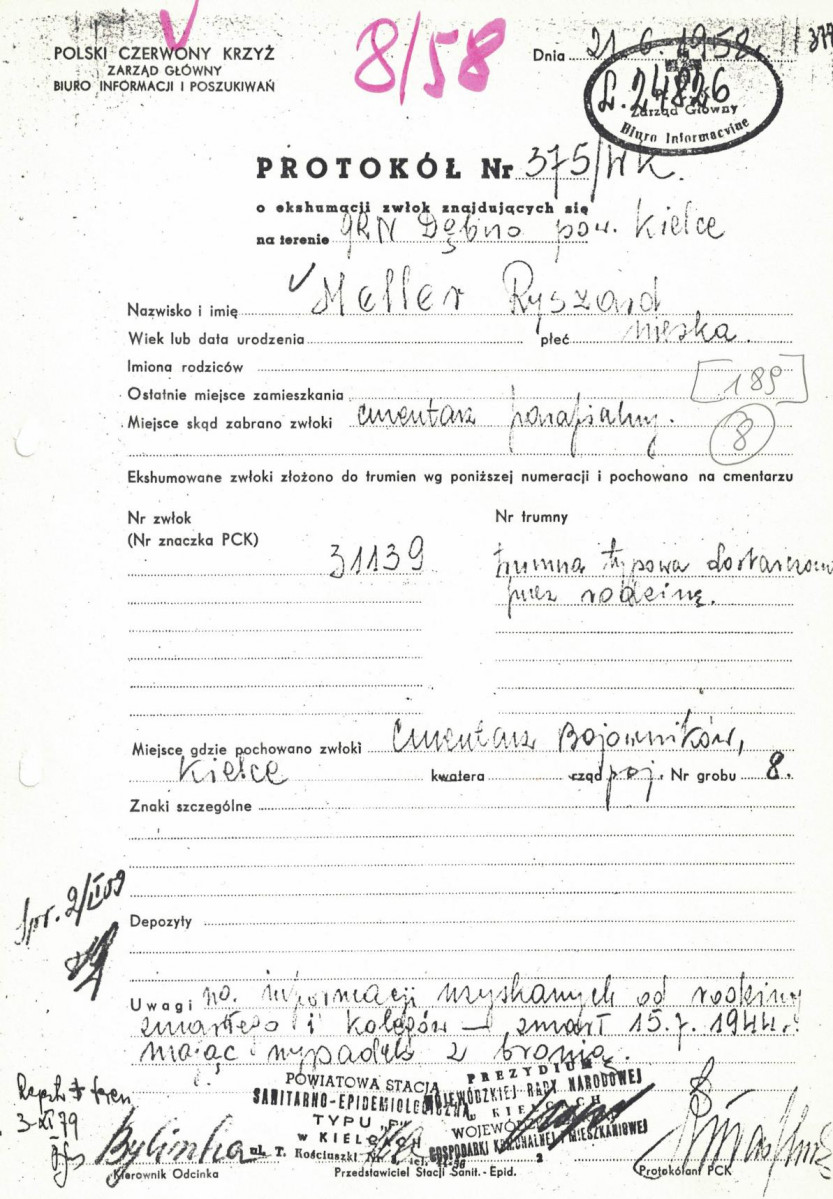 POLSKI CZERWONY KRZYŻ
ZARZĄD GŁÓWNY
BIURO INFORMACJI I POSZUKIWAŃ
8/58
Dnia 21.6.1958r.
377
Ł.24826
Zarząd Główny
Biuro Informacyjne
PROTOKÓŁ Nr 375/WK.
o ekshumacji zwłok znajdujących się
na terenie GRN Dębno pow. Kielce
Nazwisko i imię Meller Ryszard
Wiek lub data urodzenia płeć męska.
Imiona rodziców
Ostatnie miejsce zamieszkania
[189]
Miejsce skąd zabrano zwłoki cmentarz parafialny.
8
Ekshumowane zwłoki złożono do trumien wg poniższej numeracji i pochowano na cmentarzu
Nr zwłok
(Nr znaczka PCK)
31139
Nr trumny
trumna typowa dostarczona
przez rodzinę.
Miejsce gdzie pochowano zwłoki cmentarz Bojowników,
Kielce kwatera rząd poj. Nr grobu 8.
Znaki szczególne
Depozyty
Uwagi na. informacji uzyskanych od rodziny
zmarłego i kolegów – zmarł 15.7.1944r.
mając wypadek z bronią.
POWIATOWA STACJA
SANITARNO-EPIDEMIOLOGICZNA
TYPU „
w KIELCACH
ul. T. Kościuszki Nr
PREZYDIUM
WOJEWÓDZKIEJ RADY NARODOWEJ
w KIELCACH
GOSPODARKI KOMUNALNEJ i MIESZKANIOWEJ
Bylinka
Kierownik Odcinka
Przedstawiciel Stacji Sanit.-Epid.
Protokólant PCK